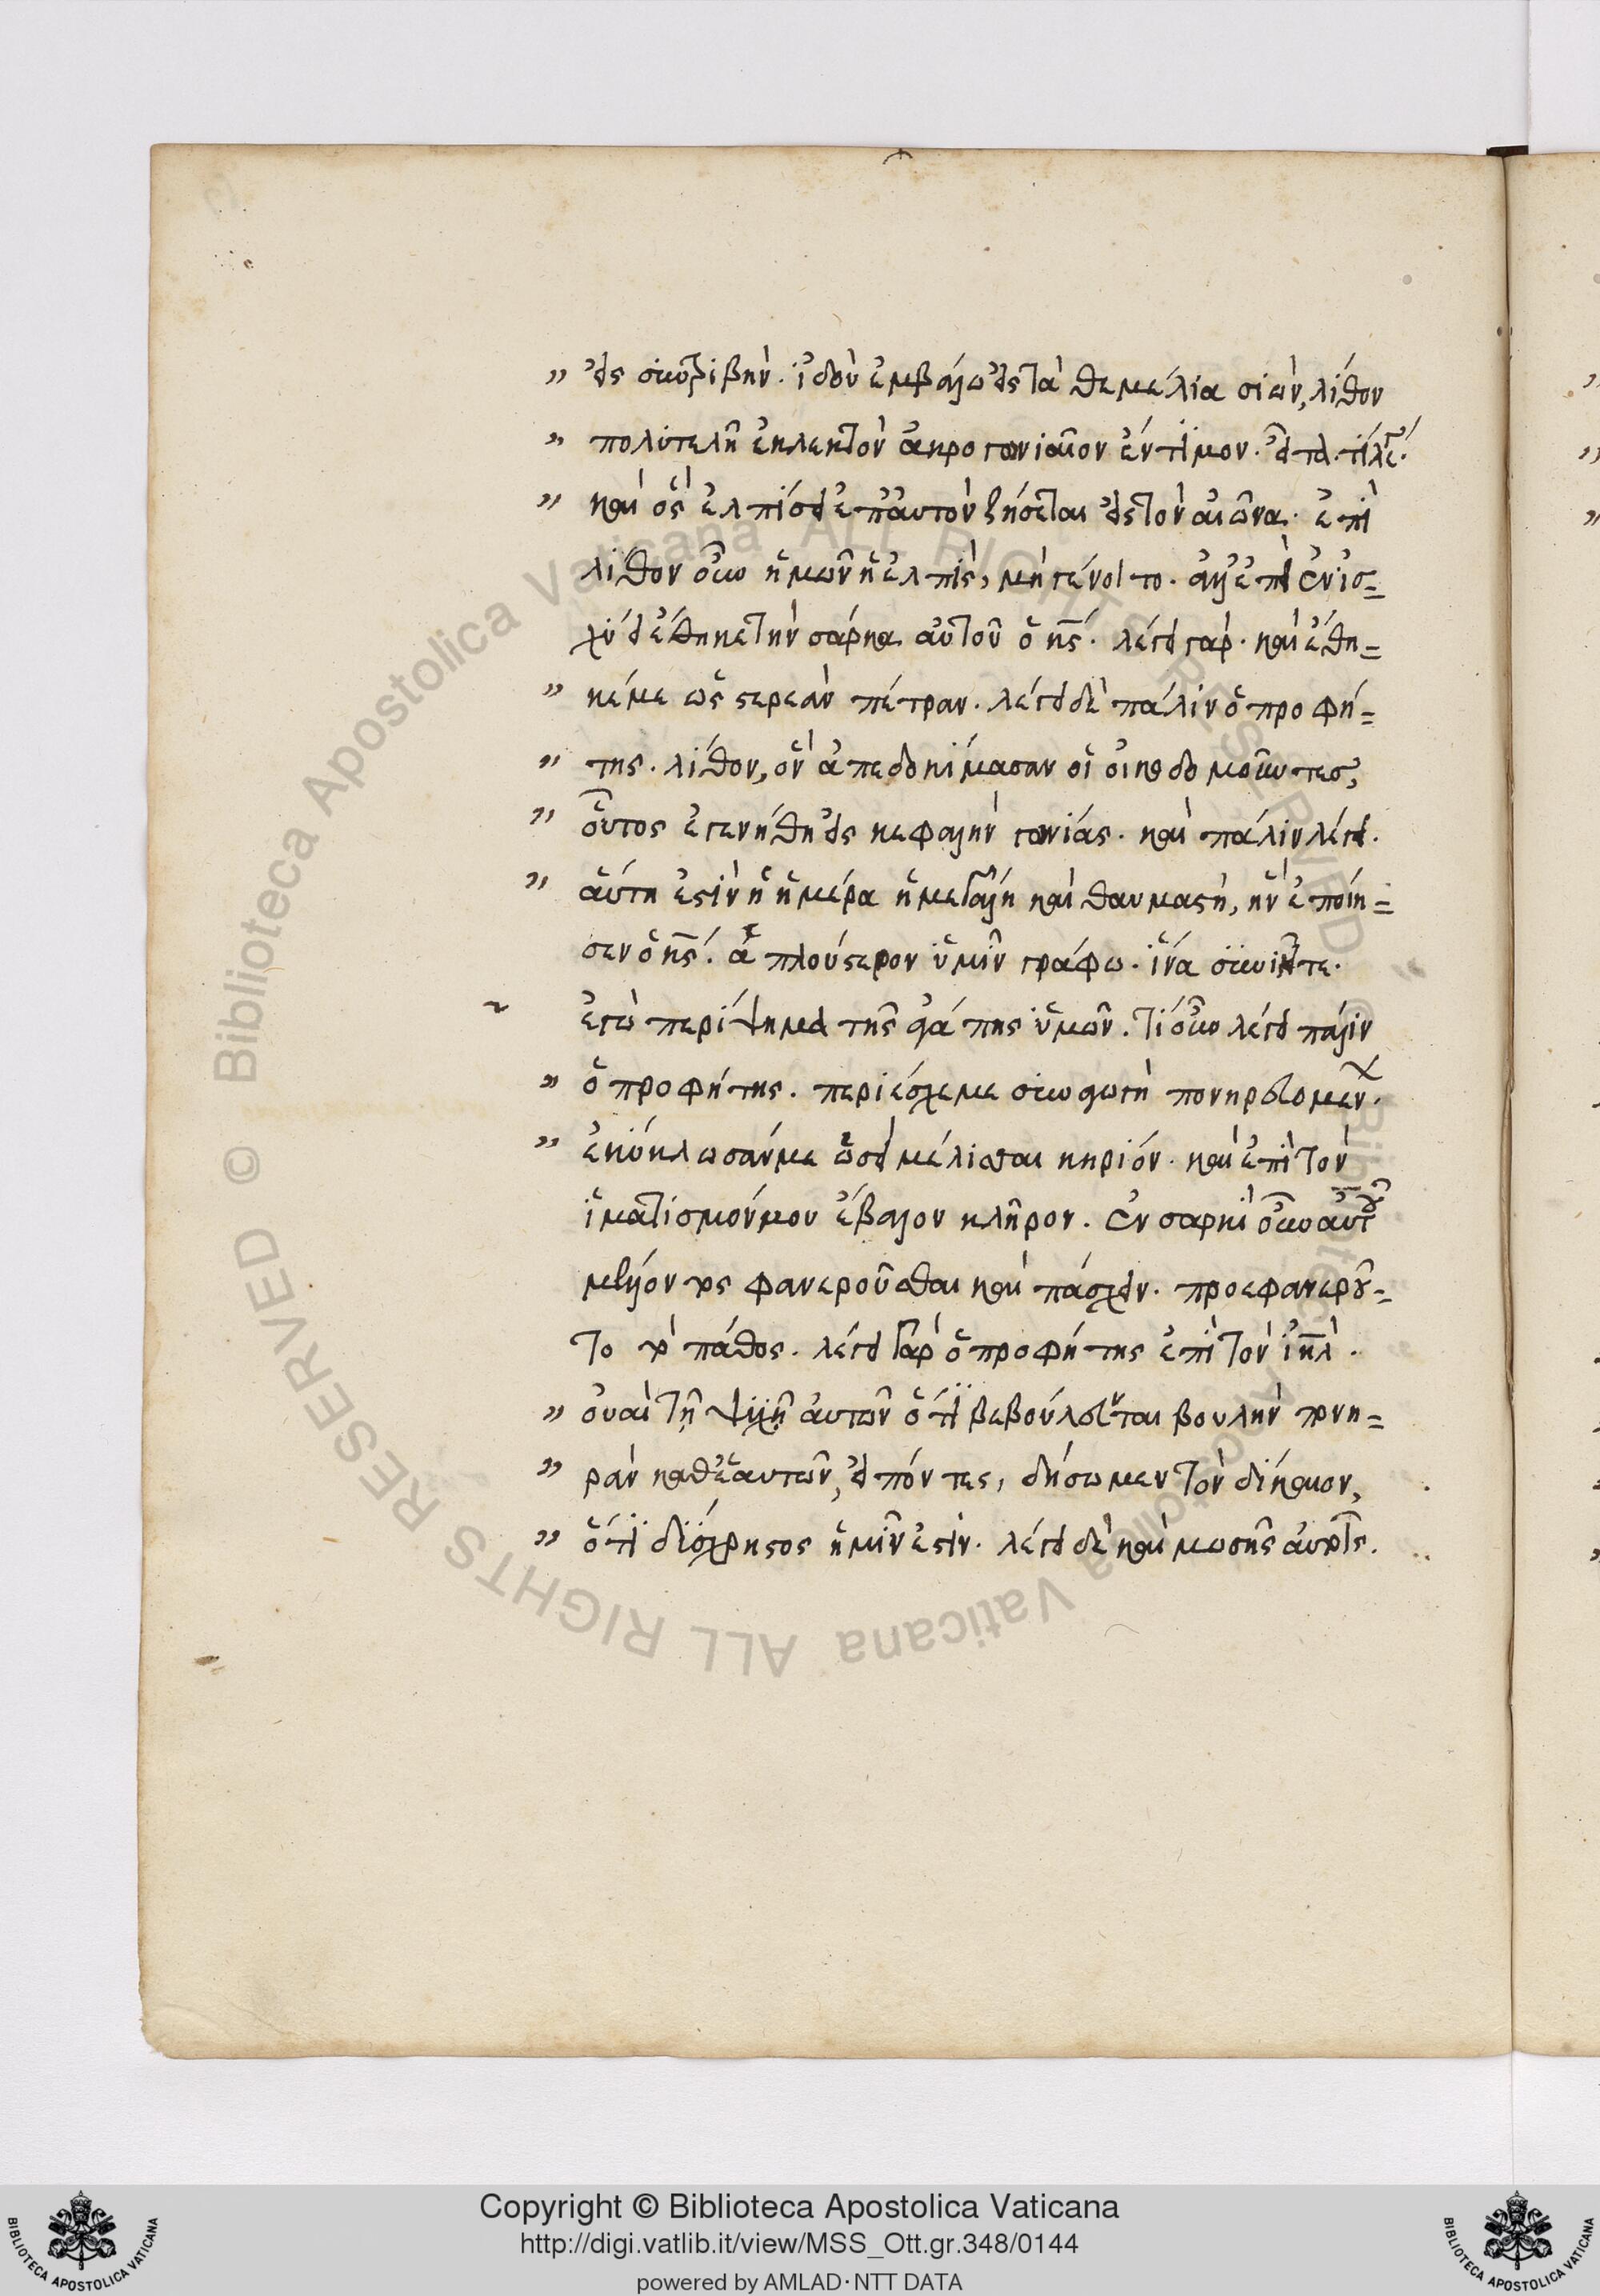 „ εἰς συντριβὴν. ἰδοὺ ἐμβάλλω εἰς τὰ θεμέλια σιὼν, λίθον
„ πολυτελῆ ἐκλεκτὸν ἀκρογωνιαῖον ἔντιμον. εἶτα. τί λέγει.
„ καὶ ὃς ἐλπίσει ἐπ' αὐτὸν ζήσεται εἰς τὸν αἰῶνα. ἐπὶ
λίθον οὖν ἡμῶν ἡ ἐλπὶς, μὴ γένοιτο. ἀλλ' ἐπεὶ ἐν ἰσ=
χύει ἔθηκε τὴν σάρκα αὐτοῦ ὁ κς. λέγει γὰρ. καὶ ἔθη=
„ κέ με ὡς στερεὰν πέτραν. λέγει δὲ πάλιν ὁ προφή=
„ της. λίθον, ὃν ἀπεδοκίμασαν οἱ οἰκοδομοῦντες,
„ οὗτος ἐγενήθη εἰς κεφαλὴν γωνίας. καὶ πάλιν λέγει.
„ αὕτη ἐστὶν ἡ ἡμέρα ἡ μεγάλη καὶ θαυμαστὴ, ἣν ἐποίη=
σεν ὁ κς. ἁπλούστερον ὑμῖν γράφω. ἵνα συνιῆτε.
ἐγὼ περίψημα τῆς ἀγάπης ὑμῶν. τί οὖν λέγει πάλιν
„ ὁ προφήτης. περιέσχε με συναγωγὴ πονηρευομένων.
„ ἐκύκλωσάν με ὡσεὶ μέλισσαι κηρίον. καὶ ἐπὶ τὸν
ἱματισμόν μου ἔβαλον κλῆρον. ἐν σαρκὶ οὖν αὐτοῦ
μέλλοντος φανεροῦσθαι καὶ πάσχειν. προεφανεροῦ=
το τὸ πάθος. λέγει γὰρ ὁ προφήτης ἐπὶ τὸν ιηλ.
„ οὐαὶ τῇ ψυχῇ αὐτῶν ὅτι βεβούλευνται βουλὴν πονη=
„ ρὰν καθ' ἑαυτῶν, εἰπόντες, δήσωμεν τὸν δίκαιον,
„ ὅτι δύσχρηστος ἡμῖν ἐστίν. λέγει δὲ καὶ μωσῆς αὐτοῖς.
Copyright © Biblioteca Apostolica Vaticana
http://digi.vatlib.it/view/MSS_Ott.gr.348/0144
powered by AMLAD·NTT DATA
BIBLIOTECA APOSTOLICA VATICANA
BIBLIOTECA APOSTOLICA VATICANA
© Biblioteca Apostolica Vaticana ALL RIGHTS RESERVED
© Biblioteca Apostolica Vaticana ALL RIGHTS RESERVED